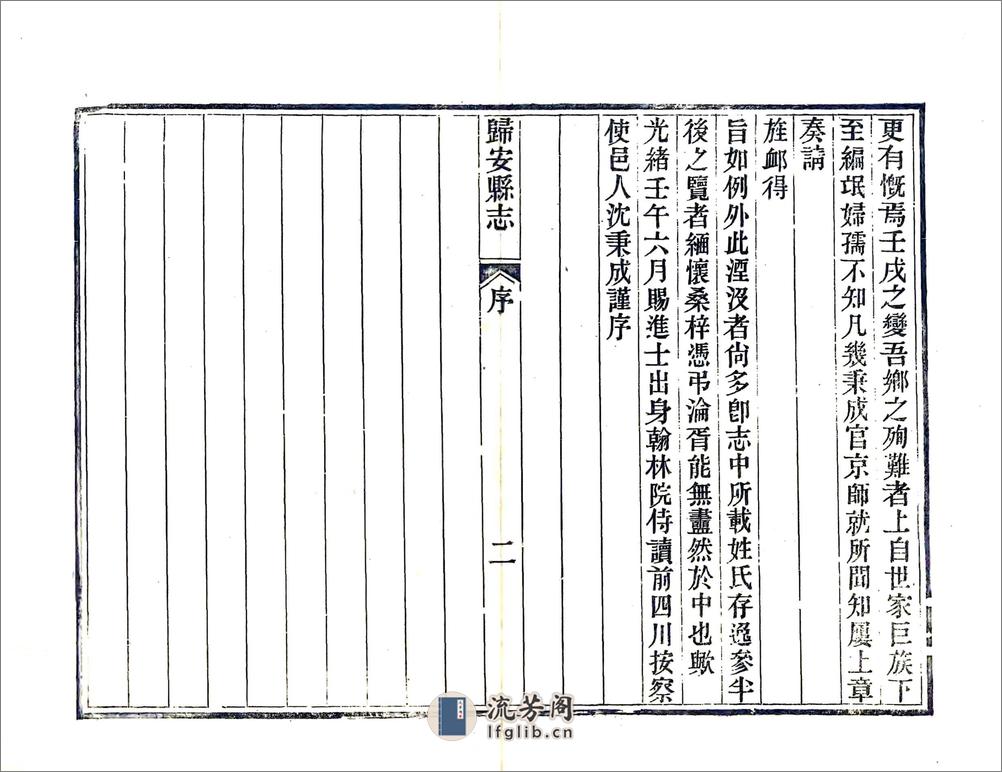 更有慨焉壬戌之變吾鄉之殉難者上自世家巨族下
至編氓婦孺不知凡幾秉成官京師就所聞知屢上章
奏請
旌卹得
旨如例外此湮沒者尙多卽志中所載姓氏存逸參半
後之覽者緬懷桑梓憑弔淪胥能無盡然於中也歟
光緒壬午六月賜進士出身翰林院侍讀前四川按察
使邑人沈秉成謹序
歸安縣志
序
二
流芳阁
lfglib.cn